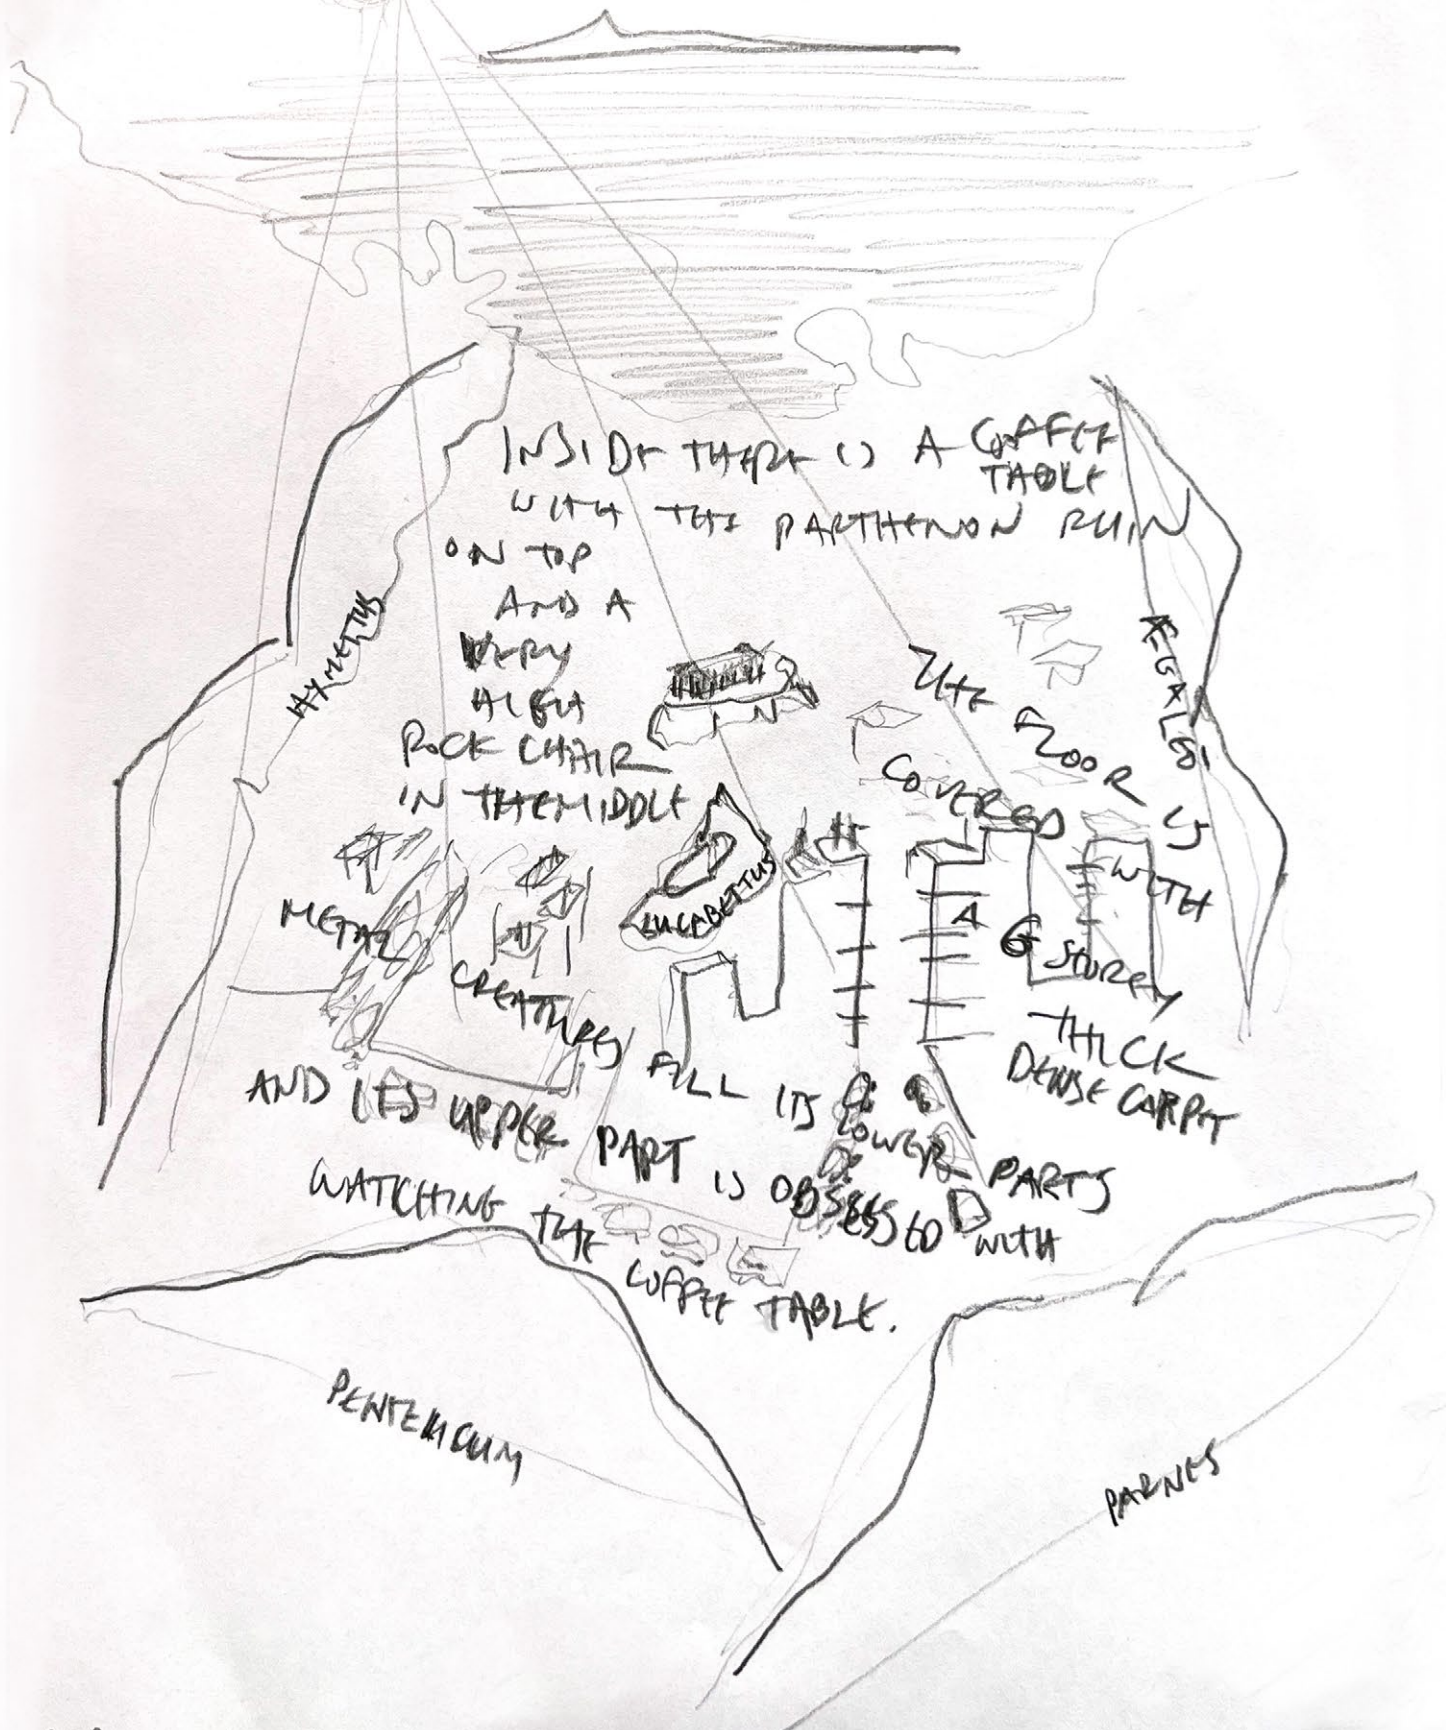 INSIDE THERE IS A COFFEE
TABLE
WITH THE PARTHENON RUIN
ON TOP
AND A
VERY
HIGH
ROCK CHAIR
IN THE MIDDLE
THE FLOOR IS
COVERED WITH
A 6 STOREY
THICK
DENSE CARPET
METAL
CREATURES FILL ITS LOWER PARTS
AND ITS UPPER PART IS OBSESSED WITH
WATCHING THE
COFFEE TABLE.
HYMETTUS
AEGALEO
LYCABETTUS
PENTELICUM
PARNES